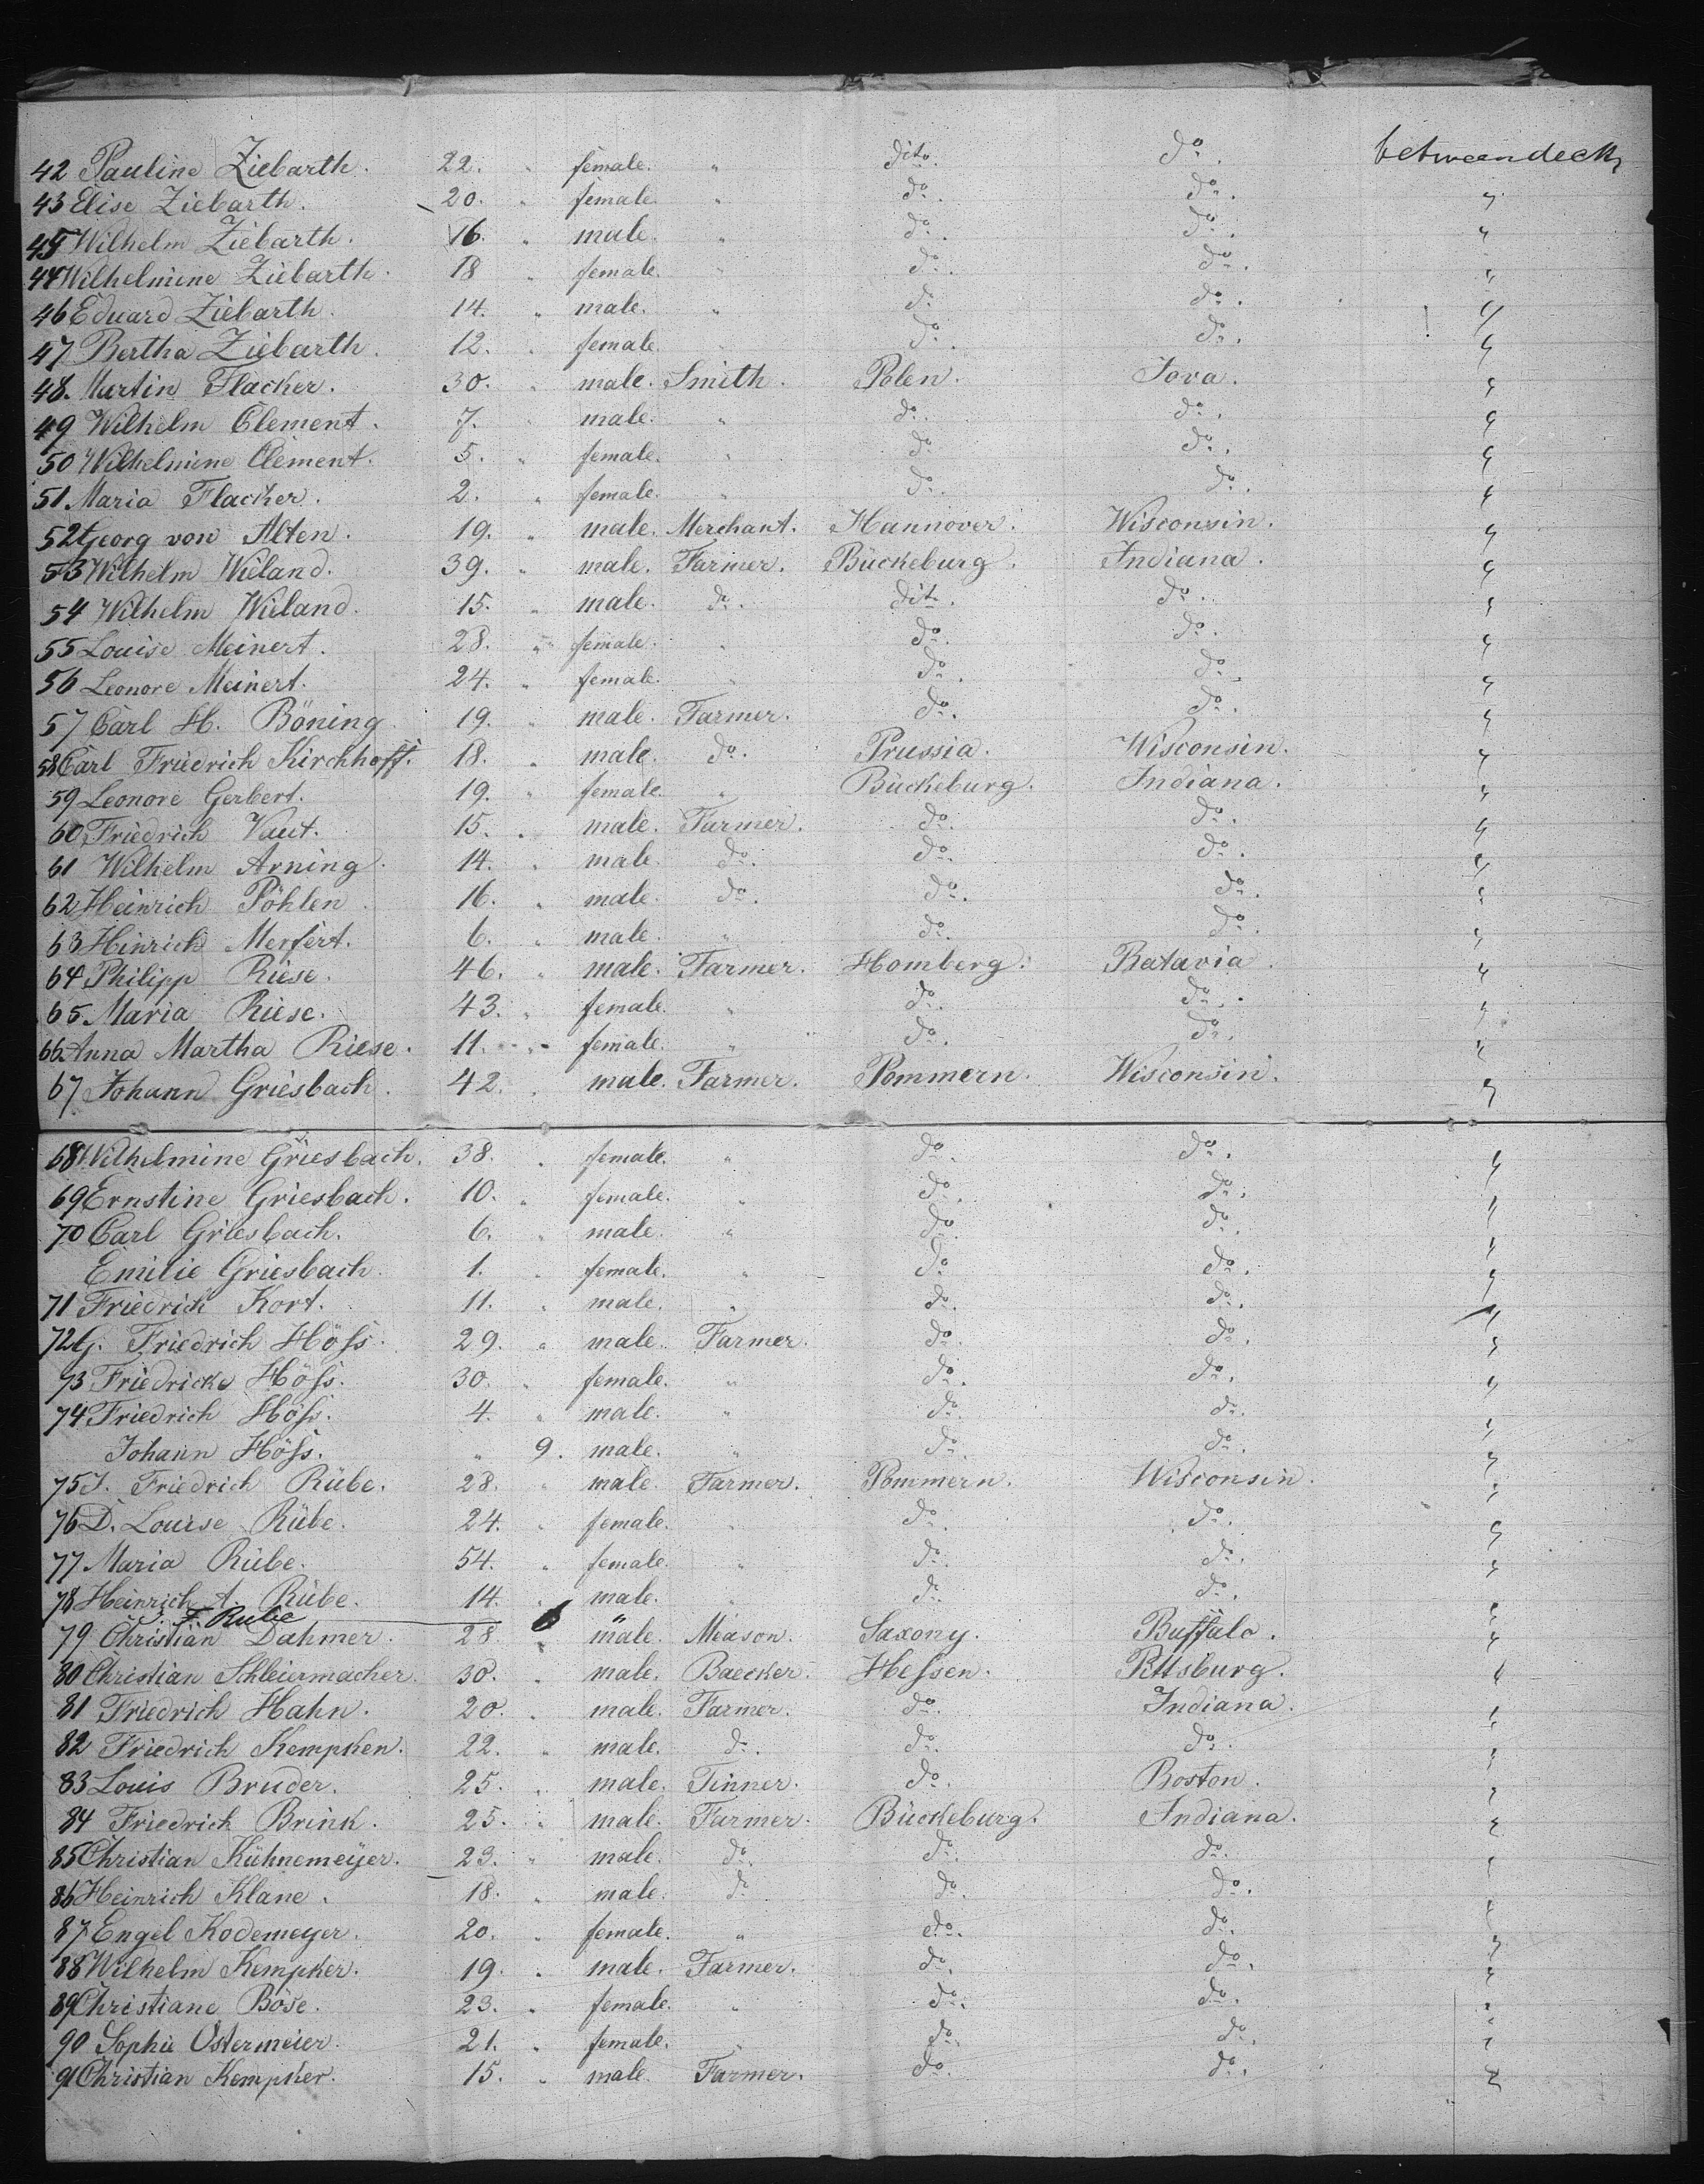 42 Pauline Ziebarth. 22. " female. " dito. do. betweendeck
43 Elise Ziebarth. 20. " female. " do. do. "
45 Wilhelm Ziebarth. 16. " male. " do. do. "
44 Wilhelmine Ziebarth. 18 " female. " do. do. "
46 Eduard Ziebarth. 14. " male. " do. do. "
47 Bertha Ziebarth. 12. " female. " do. do. "
48. Martin Flacker. 30. " male. Smith. Polen. Iova. "
49 Wilhelm Clement. 7. " male. " do. do. "
50 Wilhelmine Clement. 5. " female. " do. do. "
51 Maria Flacker. 2. " female. " do. do. "
52 Georg von Alten. 19. " male. Merchant. Hannover. Wisconsin. "
53 Wilhelm Wieland. 39. " male. Farmer. Bückeburg. Indiana. "
54 Wilhelm Wieland. 15. " male. do. dito. do. "
55 Louise Meinert. 28. " female. " do. do. "
56 Leonore Meinert. 24. " female. " do. do. "
57 Carl H. Böning. 19. " male. Farmer. do. do. "
58 Carl Friedrich Kirchhoff. 18. " male. do. Prussia. Wisconsin. "
59 Leonore Gerbert. 19. " female. " Bückeburg. Indiana. "
60 Friedrich Vaut. 15. " male. Farmer. do. do. "
61 Wilhelm Arning. 14. " male. do. do. do. "
62 Heinrich Pöhlen. 16. " male. do. do. do. "
63 Hinrich Merfert. 6. " male. " do. do. "
64 Philipp Riese. 46. " male. Farmer. Homberg. Batavia. "
65 Maria Riese. 43. " female. " do. do. "
66. Anna Martha Riese. 11. " female. " do. do. "
67 Johann Griesbach. 42. " male. Farmer. Pommern. Wisconsin. "
68 Wilhelmine Griesbach. 38. " female. " do. do. "
69 Ernstine Griesbach. 10. " female. " do. do. "
70 Carl Griesbach. 6. " male. " do. do. "
Emilie Griesbach. 1. " female. " do. do. "
71 Friedrich Kort. 11. " male. " do. do. "
72 G. Friedrich Höfs. 29. " male. Farmer. do. do. "
73 Friedricke Höfs. 30. " female. " do. do. "
74 Friedrich Höfs. 4. " male. " do. do. "
Johann Höfs. " 9. male. " do. do. "
75 J. Friedrich Rübe. 28. " male. Farmer. Pommern. Wisconsin. "
76 D. Louise Rübe. 24. " female. " do. do. "
77 Maria Rübe. 54. " female. " do. do. "
78 Heinrich A. Rübe. 14. " male. " do. do. "
F Rube 6 "
79 Christian Dahmer. 28. " male. Meason. Saxony. Buffalo. "
80 Christian Schleiermacher. 30. " male. Baecker. Hefsen. Pittsburg. "
81 Friedrich Hahn. 20. " male. Farmer. do. Indiana. "
82 Friedrich Kempken. 22. " male. do. do. do. "
83 Louis Bruder. 25. " male. Tinner. do. Boston. "
84 Friedrich Brink. 25. " male. Farmer. Bückeburg. Indiana. "
85 Christian Kühnemeÿer. 23. " male. do. do. do. "
86 Heinrich Klane. 18. " male. do. do. do. "
87 Engel Kodemeyer. 20. " female. " do. do. "
88 Wilhelm Kempker. 19. " male. Farmer. do. do. "
89 Christiane Böse. 23. " female. " do. do. "
90 Sophie Ostermeier. 21. " female. " do. do. "
91 Christian Kempker. 15. " male. Farmer. do. do. "